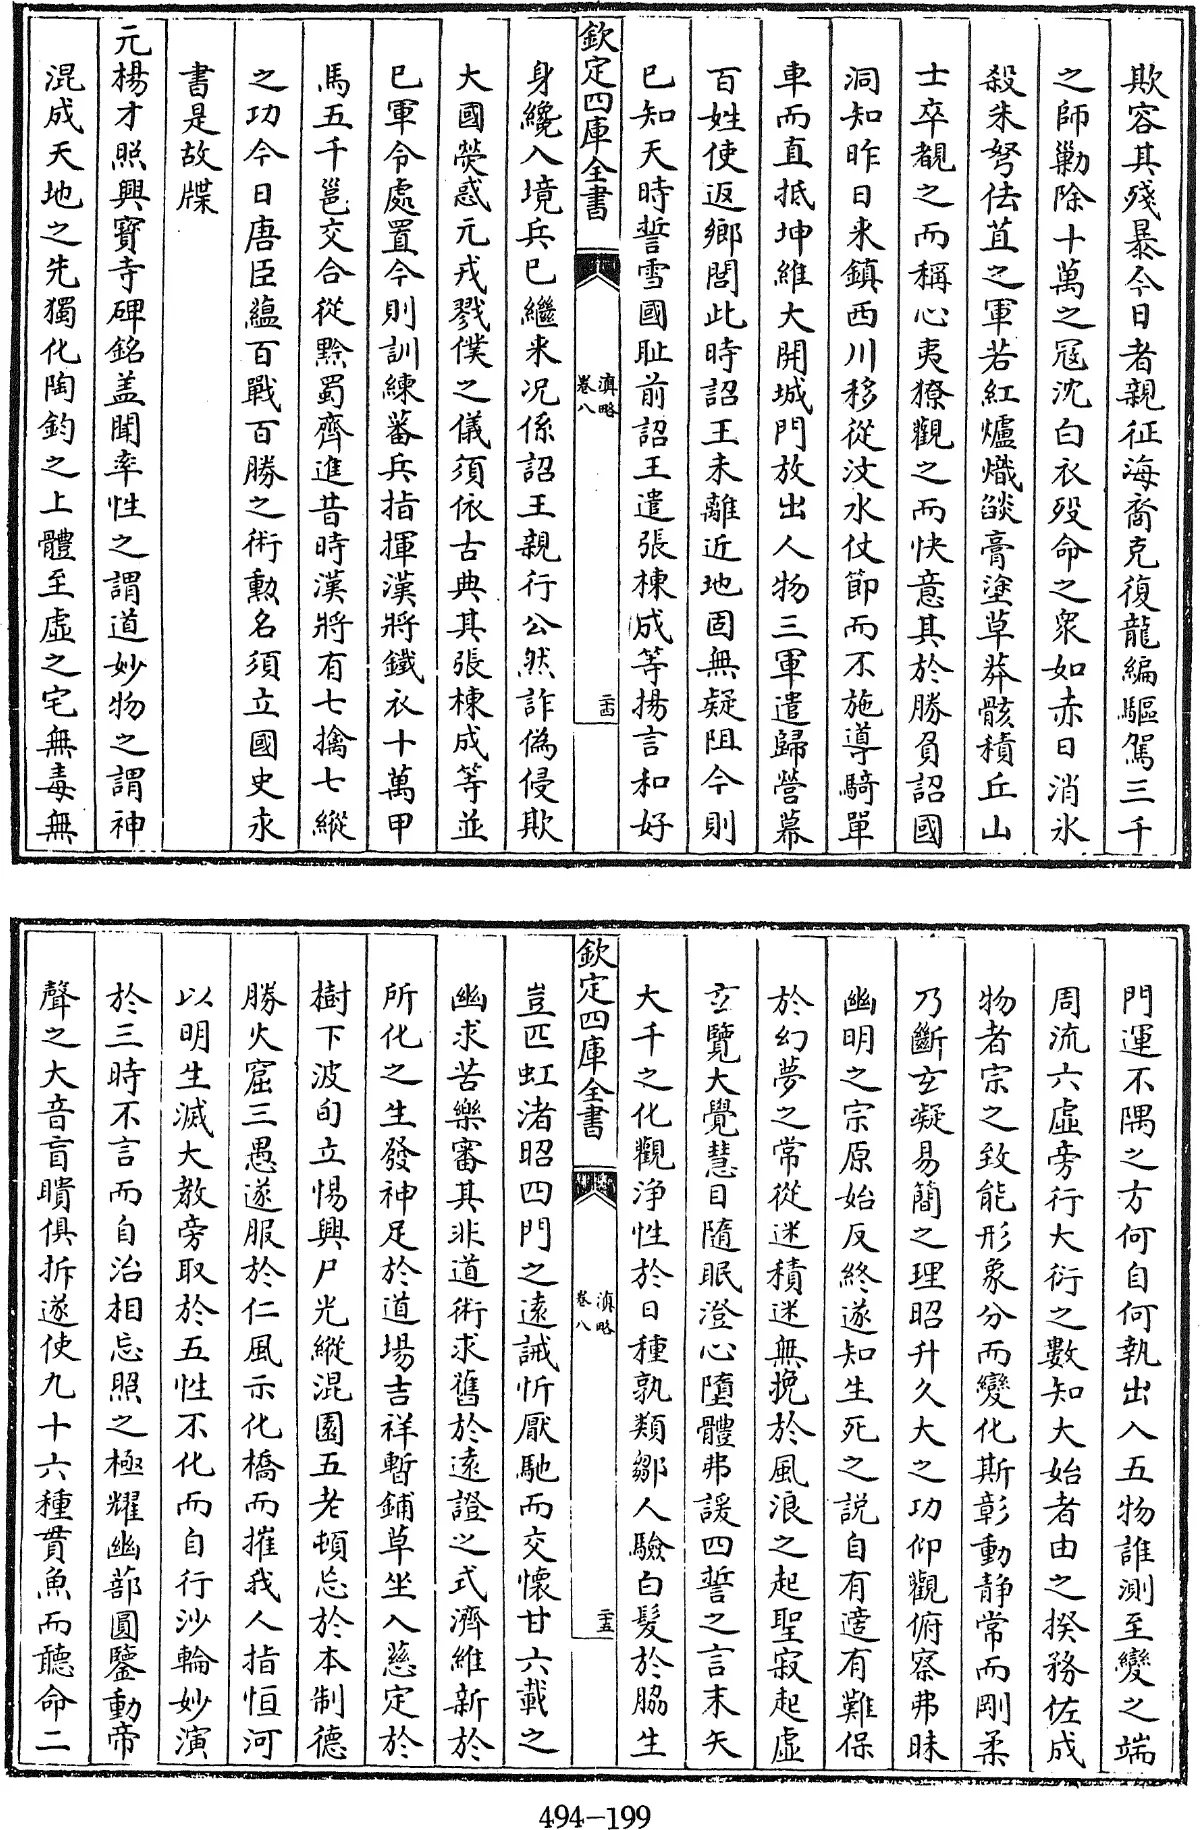 欺容其殘暴今日者親征海裔克復龍編驅駕三千
之師勦除十萬之冦沈白衣歿命之衆如赤日消氷
殺朱弩佉苴之軍若紅爐熾燄膏塗草莽骸積丘山
士卒覩之而稱心夷獠觀之而快意其於勝負詔國
洞知昨日来鎮西川移從汶水仗節而不施導騎單
車而直抵坤維大開城門放出人物三軍遣歸營幕
百姓使返鄉閭此時詔王未離近地固無疑阻今則
已知天時誓雪國耻前詔王遣張棟成等揚言和好
欽定四庫全書
滇略
卷八
二十四
身纔入境兵已繼来况係詔王親行公然詐偽侵欺
大國熒惑元戎戮僕之儀須依古典其張棟成等並
已軍令處置今則訓練蕃兵指揮漢將鐵衣十萬甲
馬五千邕交合從黔蜀齊進昔時漢將有七擒七縱
之功今日唐臣藴百戰百勝之術勲名須立國史永
書是故牒
元楊才照興寳寺碑銘盖聞率性之謂道妙物之謂神
混成天地之先獨化陶鈞之上體至虛之宅無毒無
門運不隅之方何自何執出入五物誰測至變之端
周流六虛旁行大衍之數知大始者由之揆務佐成
物者宗之致能形象分而變化斯彰動静常而剛柔
乃斷玄凝易簡之理昭升久大之功仰觀俯察弗昧
幽明之宗原始反終遂知生死之説自有適有難保
於幻夢之常從迷積迷無挽於風浪之起聖寂起虛
玄覽大覺慧目隨眠澄心墮體弗諼四誓之言末矢
大千之化觀浄性於日種孰類鄒人驗白髮於脇生
欽定四庫全書
滇略
卷八
二十五
豈匹虹渚昭四門之遠誡忻厭馳而交懷甘六載之
幽求苦樂審其非道術求舊於遠證之式濟維新於
所化之生發神足於道場吉祥暫鋪草坐入慈定於
樹下波旬立惕興尸光縱混園五老頓忘於本制德
勝火窟三愚遂服於仁風示化橋而摧我人指恒河
以明生滅大教旁取於五性不化而自行沙輪妙演
於三時不言而自治相忘照之極耀幽蔀圓鑒動帝
聲之大音盲瞶俱拆遂使九十六種貫魚而聽命二
494-199